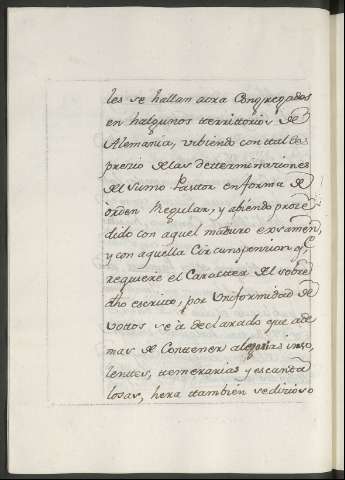 les se hallan aora Congregados
en halgunos territtorios de
Alemania, vibiendo con ttal des
prezio de las detterminaciones
del Sumo Pastor en forma de
orden Regular, y abiendo proze
dido con aquel maduro exsamen,
y con aquella Circunspenzion q.e
requiere el Caractter del sobre
dho escritto, por Uniformidad de
vottos se à declarado que ade
mas de Conttener alegorias inso
lenttes, ttemerarias y escanda
losas, hera ttambien sedizioso